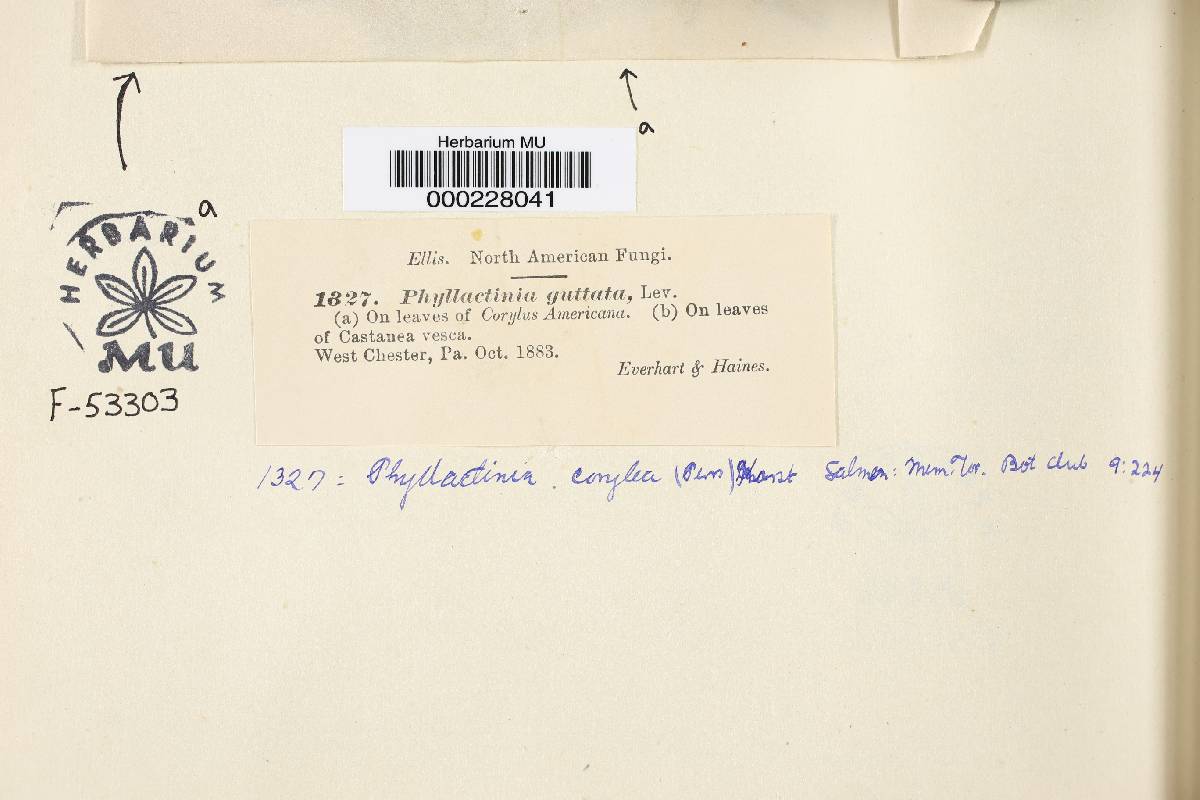 a
Herbarium MU
000228041
a
HERBARIUM
MU
F-53303
Ellis. North American Fungi.
1327. Phyllactinia guttata, Lev.
(a) On leaves of Corylus Americana. (b) On leaves
of Castanea vesca.
West Chester, Pa. Oct. 1883.
Everhart & Haines.
1327 = Phyllactinia corylea (Pers) Karst Salmon: Mem. Tor. Bot Club 9:224